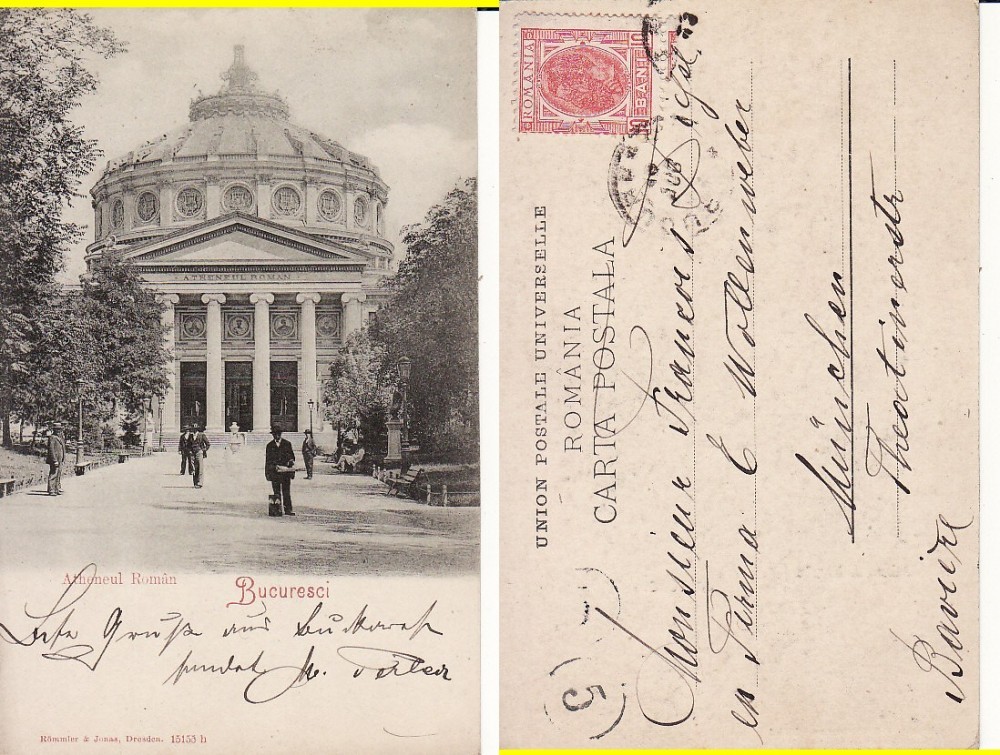 ATHENEUL ROMAN
Atheneul Român
Bucuresci
Gruß aus Bukarest
sendet
Römmler & Jonas, Dresden. 15153 h
ROMANIA
10 BANI 10
UNION POSTALE UNIVERSELLE
ROMÂNIA
CARTA POSTALA
Monsieur François
en Firma C Wollenweber
München
Theatinerstr
Bavière
5